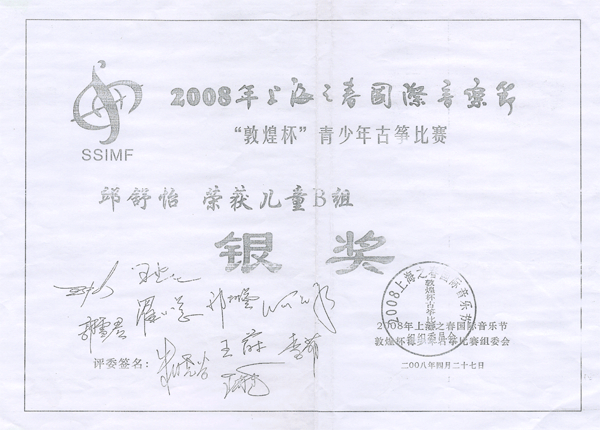 SSIMF
2008年上海之春国际音乐节
“敦煌杯”青少年古筝比赛
邱舒怡 荣获儿童B组
银奖
评委签名：
2008上海之春国际音乐节
敦煌杯古筝比赛
组织委员会
2008年上海之春国际音乐节
敦煌杯青少年古筝比赛组委会
二00八年四月二十七日